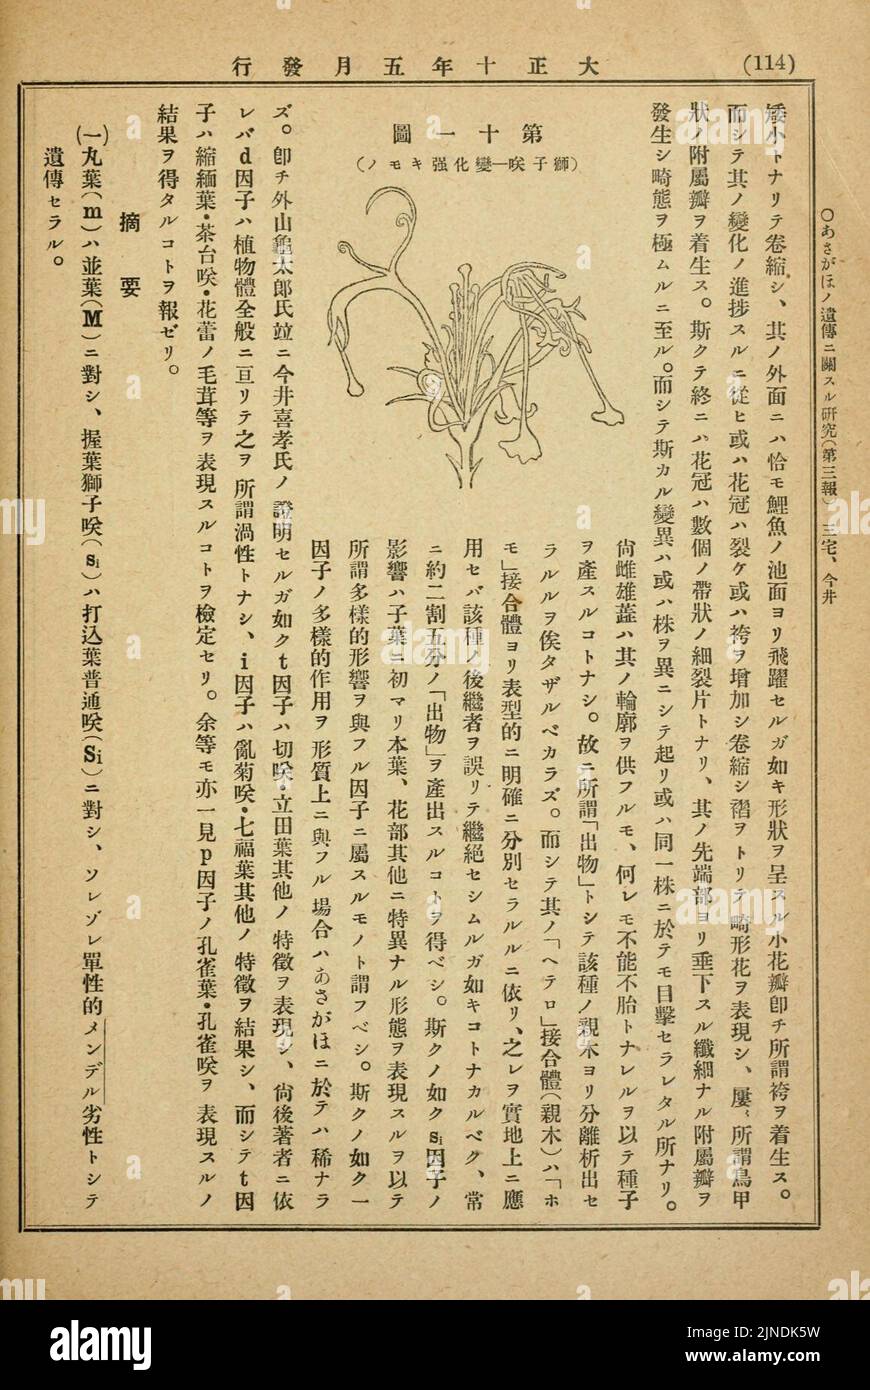 (114)
大正十年五月發行
○あさがほノ遺傳ニ關スル研究(第三報) 三宅、今井
矮小トナリテ卷縮シ、其ノ外面ニハ恰モ鯉魚ノ池面ヨリ飛躍セルガ如キ形狀ヲ呈スル小花瓣卽チ所謂袴ヲ着生ス。
而シテ其ノ變化ノ進捗スルニ從ヒ或ハ花冠ハ裂ケ或ハ袴ヲ增加シ卷縮シ褶ヲトリテ畸形花ヲ表現シ、屢〻所謂鳥甲
狀ノ附屬瓣ヲ着生ス。斯クテ終ニハ花冠ハ數個ノ帶狀ノ細裂片トナリ、其ノ先端部ヨリ垂下スル纖細ナル附屬瓣ヲ
發生シ畸態ヲ極ムルニ至ル。而シテ斯カル變異ハ或ハ株ヲ異ニシテ起リ或ハ同一株ニ於テモ目擊セラレタル所ナリ。
第十一圖
(獅子咲—變化强キモノ)
尙雌雄蕋ハ其ノ輪廓ヲ供フルモ、何レモ不能不胎トナレルヲ以テ種子
ヲ產スルコトナシ。故ニ所謂「出物」トシテ該種ノ親木ヨリ分離析出セ
ラルルヲ俟タザルベカラズ。而シテ其ノ「ヘテロ」接合體(親木)ハ「ホ
モ」接合體ヨリ表型的ニ明確ニ分別セラルルニ依リ、之レヲ實地上ニ應
用セバ該種ノ後繼者ヲ誤リテ繼絕セシムルガ如キコトナカルベク、常
ニ約二割五分ノ「出物」ヲ產出スルコトヲ得ベシ。斯クノ如クsi因子ノ
影響ハ子葉ニ初マリ本葉、花部其他ニ特異ナル形態ヲ表現スルヲ以テ
所謂多樣的形響ヲ與フル因子ニ屬スルモノト謂フベシ。斯クノ如ク一
因子ノ多樣的作用ヲ形質上ニ與フル場合ハあさがほニ於テハ稀ナラ
ズ。卽チ外山龜太郞氏竝ニ今井喜孝氏ノ證明セルガ如クt因子ハ切咲・立田葉其他ノ特徵ヲ表現シ、尙後著者ニ依
レバd因子ハ植物體全般ニ亘リテ之ヲ所謂渦性トナシ、i因子ハ亂菊咲・七福葉其他ノ特徵ヲ結果シ、而シテt因
子ハ縮緬葉・茶台咲・花蕾ノ毛茸等ヲ表現スルコトヲ檢定セリ。余等モ亦一見p因子ノ孔雀葉・孔雀咲ヲ表現スルノ
結果ヲ得タルコトヲ報ゼリ。
摘要
(一)丸葉(m)ハ並葉(M)ニ對シ、握葉獅子咲(si)ハ打込葉普通咲(Si)ニ對シ、ソレゾレ單性的メンデル劣性トシテ
遺傳セラル。
alamy
Image ID: 2JNDK5W
www.alamy.com